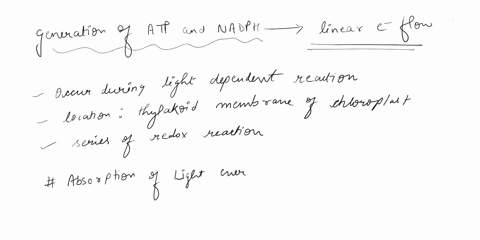 generation of ATP and NADPH → linear e⁻ flow
✓ occur during light dependent reaction
✓ location : thylakoid membrane of chloroplast
✓ series of redox reaction
# Absorption of Light ener